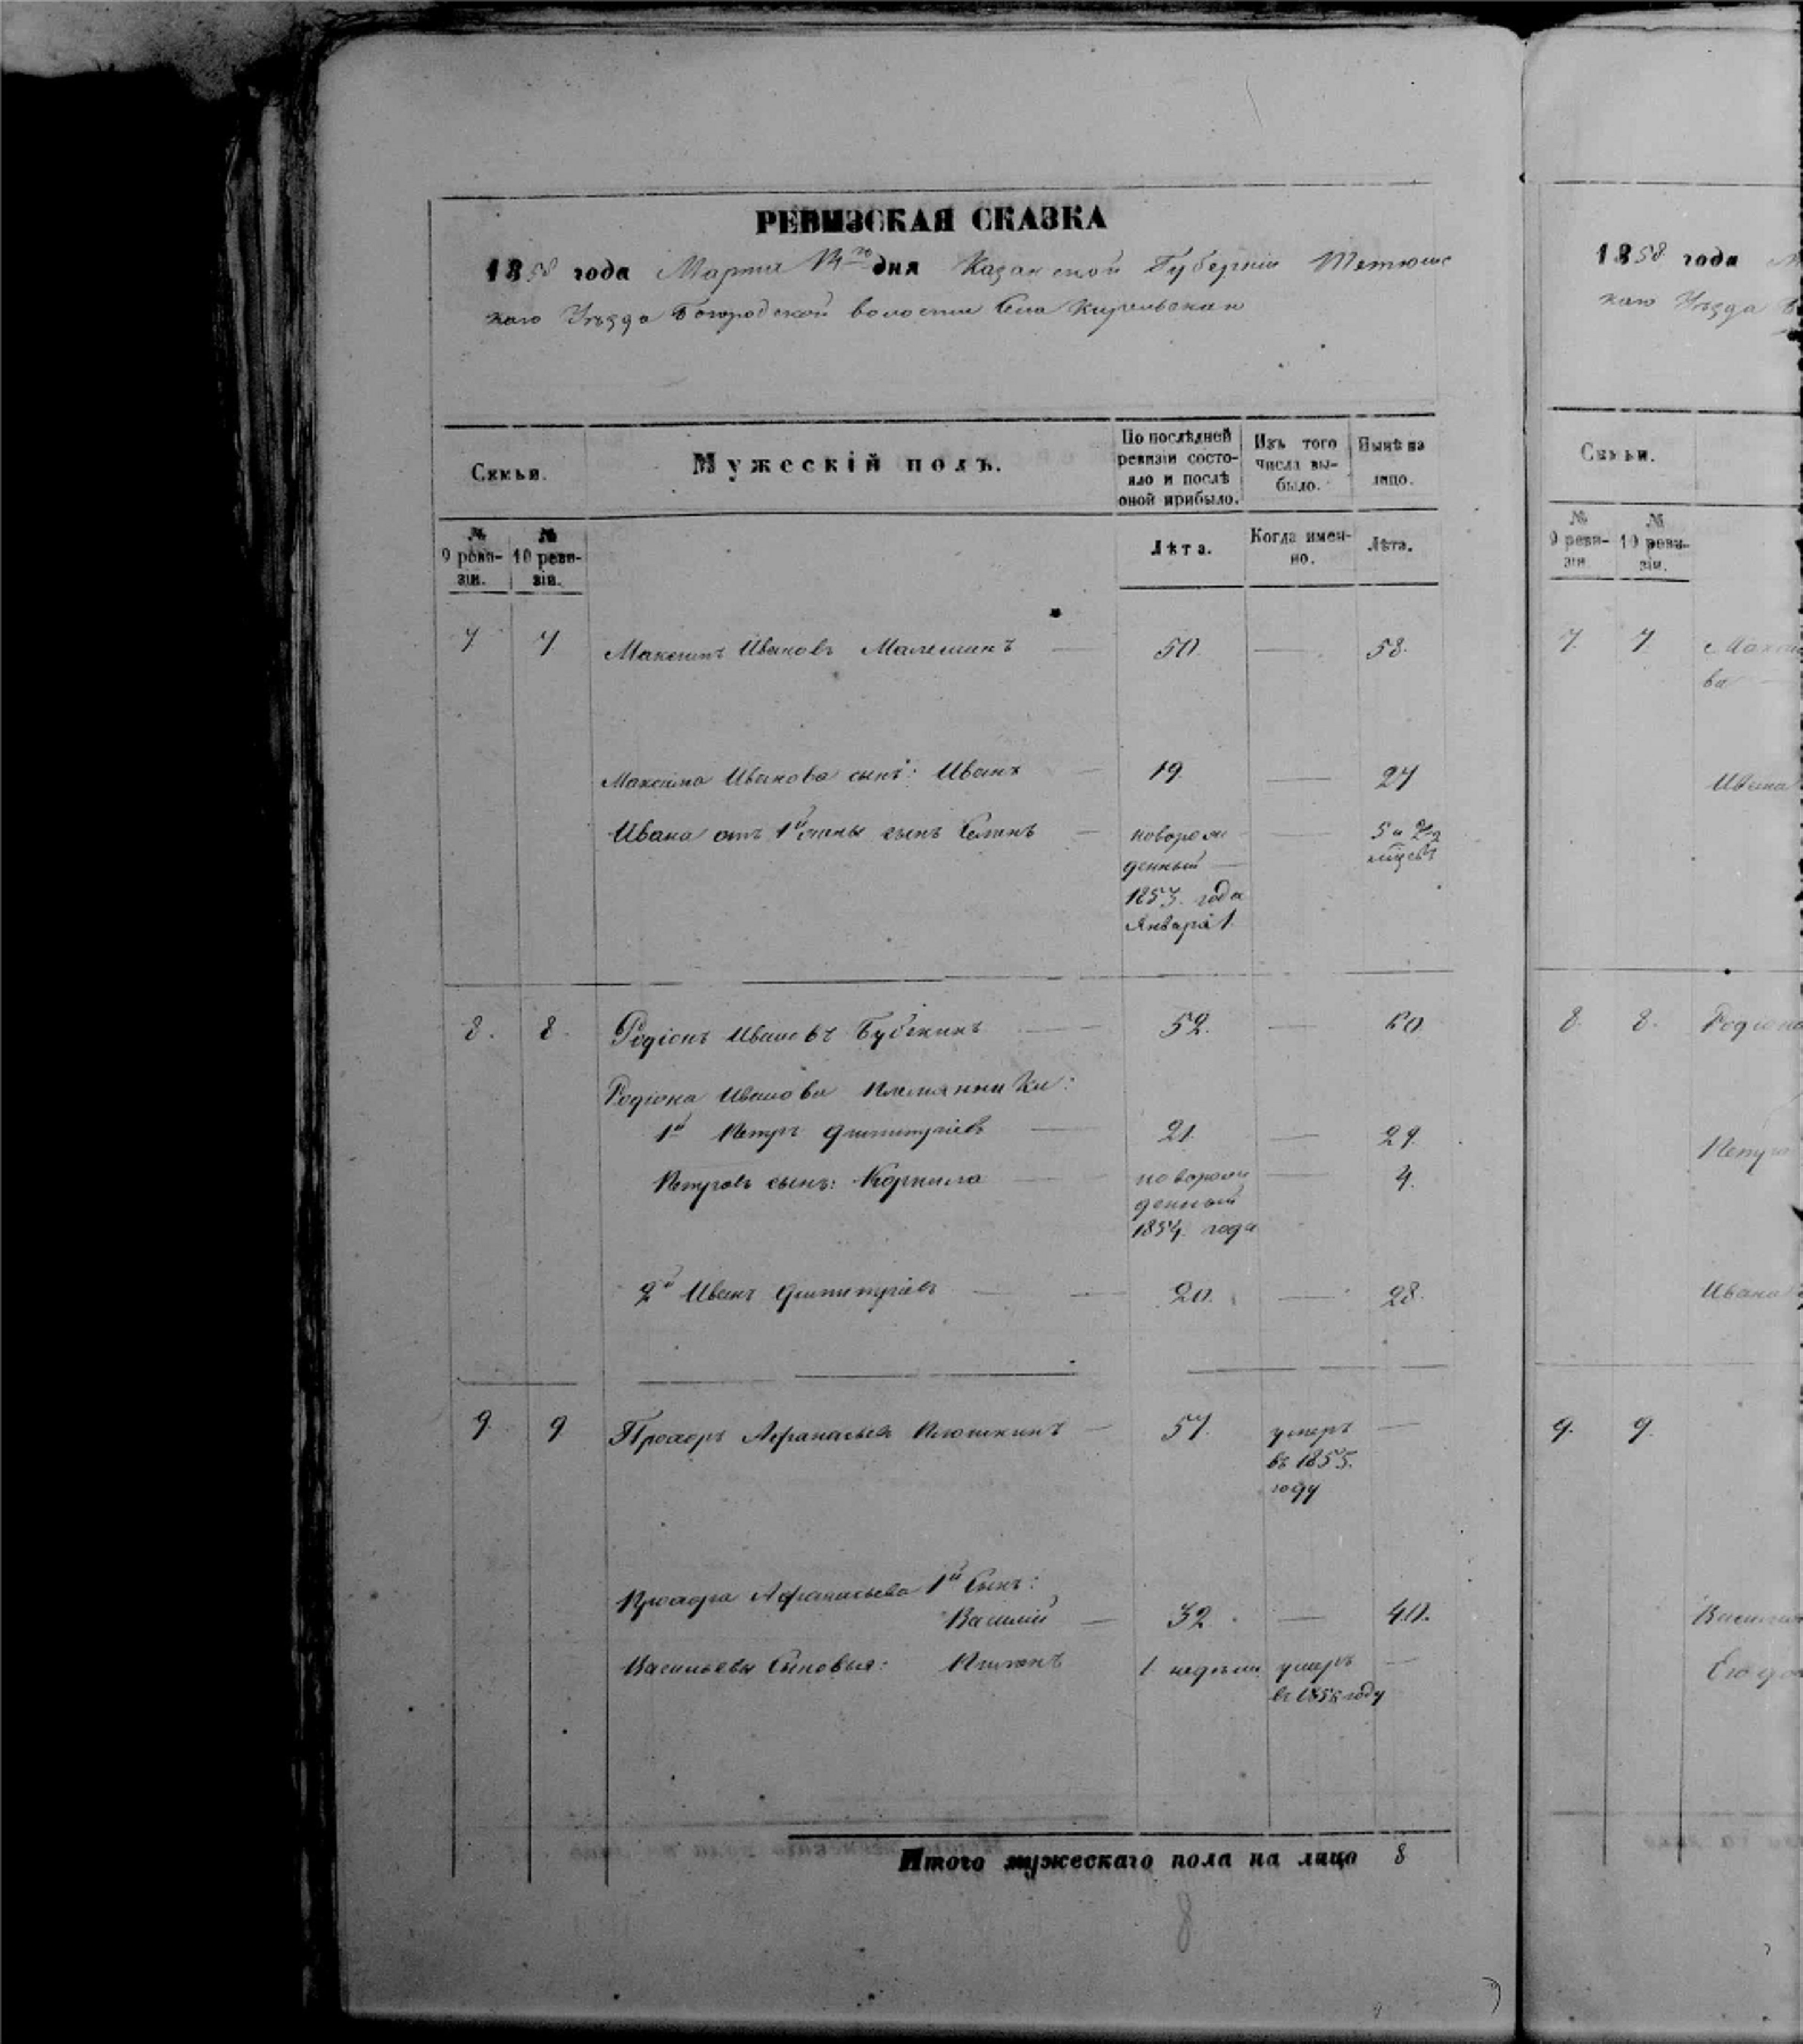 РЕВИЗСКАЯ СКАЗКА
1858 года Марта дня Казанской Губерніи Тетюшс
каго Уѣзда Богородской волости Села Кирельскаго
Семьи.
Мужескій полъ.
По послѣдней ревизіи состо-
яло и послѣ
оной прибыло.
Изъ того
числа вы-
было.
Нынѣ на
лицо.
№ 9 реви-
зіи.
№ 10 реви-
зіи.
Лѣта.
Когда имен-
но.
Лѣта.
7 7 Максимъ Ивановъ 50. 58.
Максима Иванова сынъ: Иванъ 19. 27
Ивана отъ 1й жены сынъ новорож
денный
1853. года
Января 1.
5 и
мцсвъ
8. 8. Родіонъ Ивановъ 52. 60
Родіона Иванова племянники:
1й Петръ Димитріевъ 21. 29.
Петровъ сынъ: Корнило новорож
денный
1854. года
4.
2й Иванъ Димитріевъ 20. 28.
9. 9 Прохоръ Афанасьевъ Плюшкинъ 57. умеръ
въ 1855.
году
Прохора Афанасьева 1й Сынъ:
Василій 32. 40.
Васильевы Сыновья: 1. недѣли умеръ
въ году
Итого мужескаго пола на лицо 8
8
1858 года
каго Уѣзда
Семьи.
№ 9 реви-
зіи
№ 10 реви-
зіи.
7. 7.
ва
Ивана
8. 8. Родіона
Петра
Ивана
9. 9.